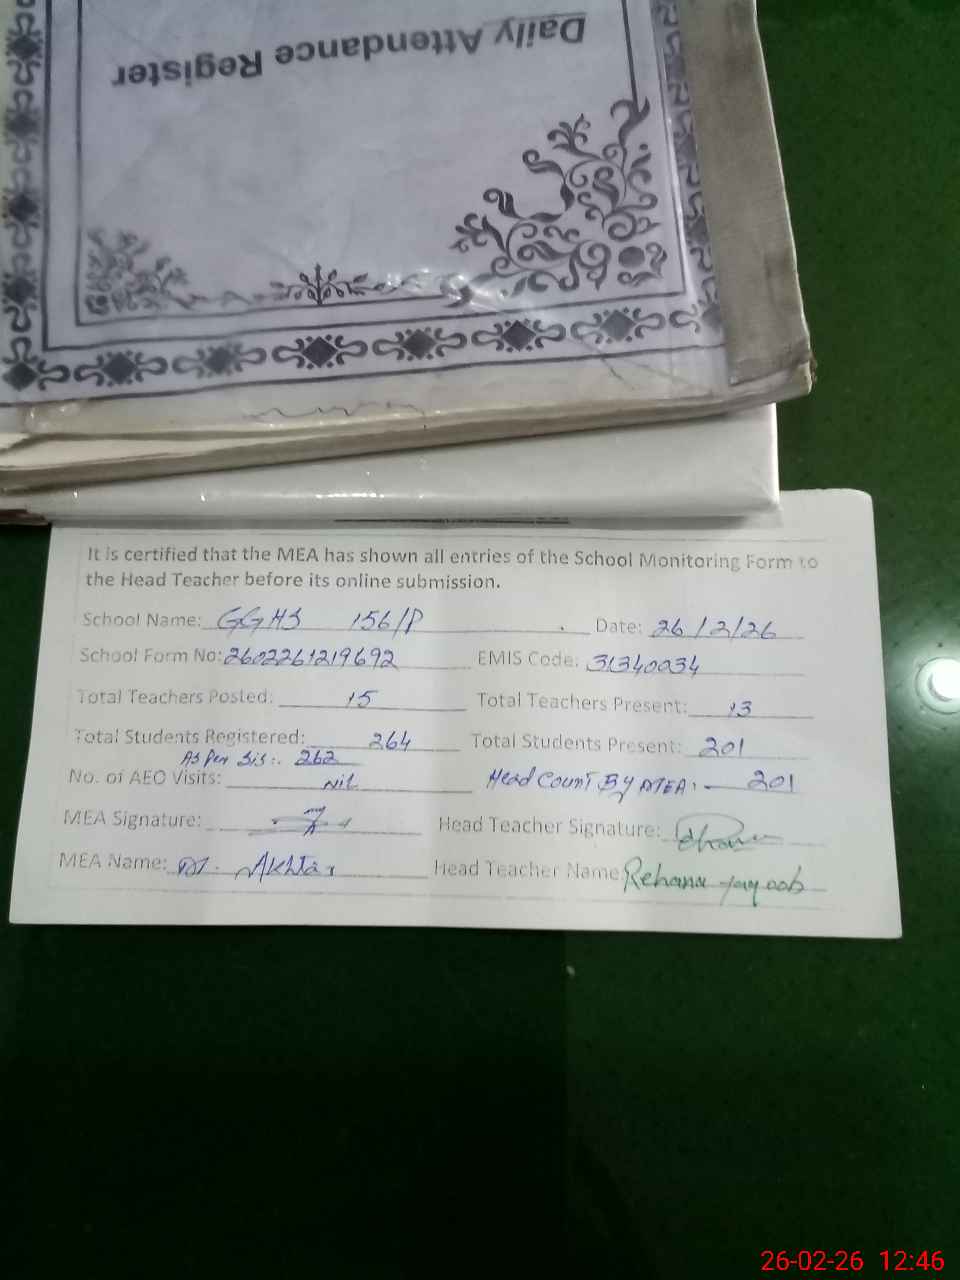 Daily Attendance Register
It is certified that the MEA has shown all entries of the School Monitoring Form to
the Head Teacher before its online submission.
School Name: GGHS 156/P Date: 26/2/26
School Form No: 2602261219692 EMIS Code: 31340034
Total Teachers Posted: 15 Total Teachers Present: 13
Total Students Registered: 264 Total Students Present: 201
As Per Sis:. 262
No. of AEO Visits: Nil Head Count By MEA: - 201
MEA Signature: Head Teacher Signature:
MEA Name: M. Akhtar Head Teacher Name: Rehana yaqoob
26-02-26 12:46